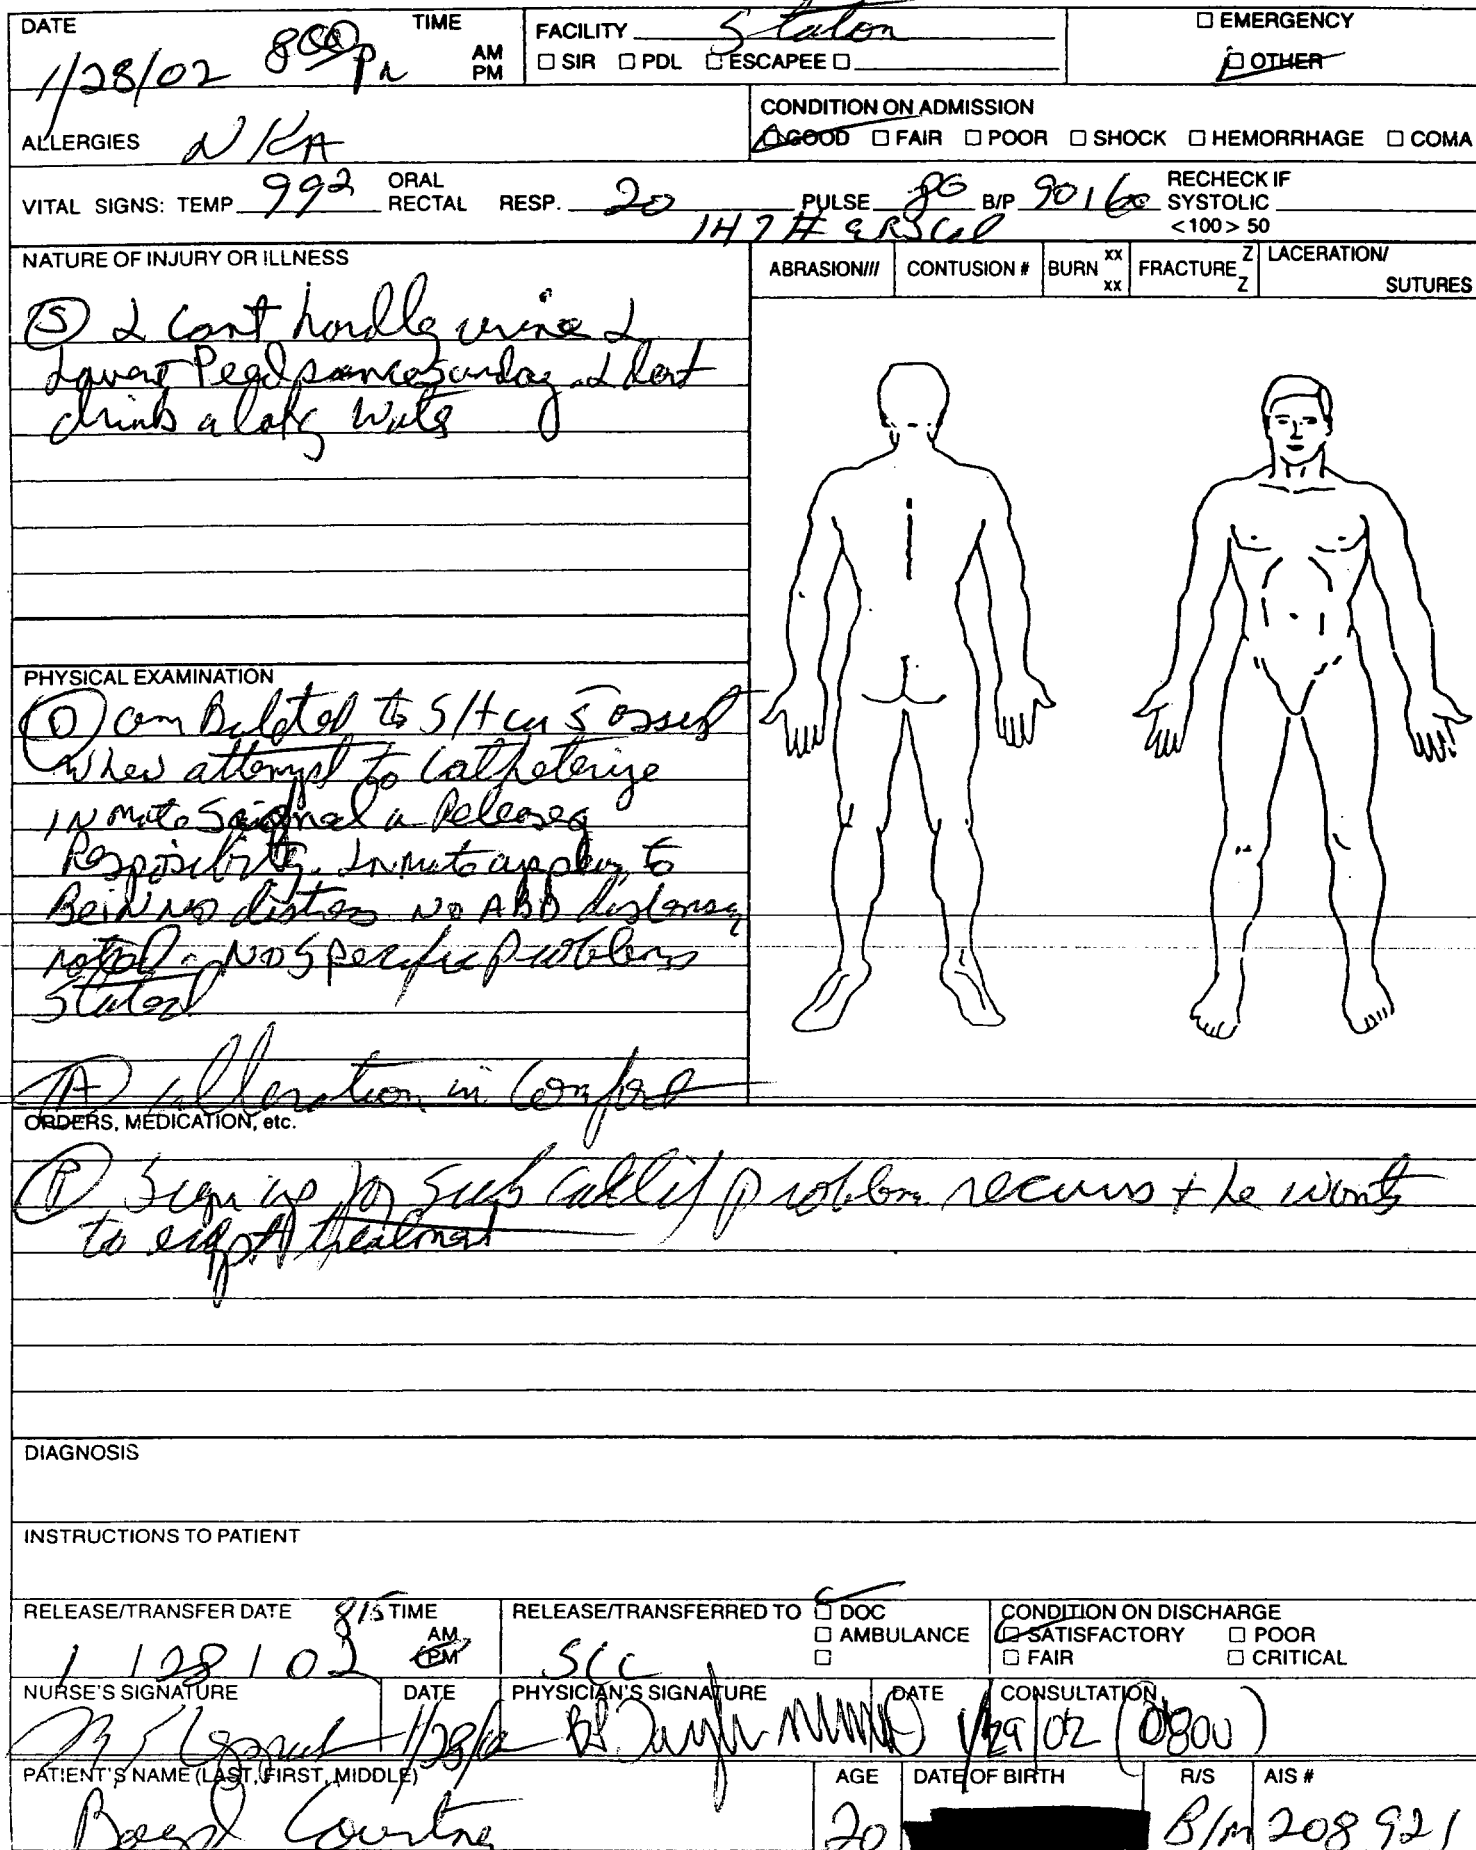 DATE TIME
1/28/02 8:00 pm AM PM
FACILITY Staton
□ SIR □ PDL □ ESCAPEE □
□ EMERGENCY
□ OTHER
ALLERGIES NKA
CONDITION ON ADMISSION
□ GOOD □ FAIR □ POOR □ SHOCK □ HEMORRHAGE □ COMA
VITAL SIGNS: TEMP 99 2 ORAL RECTAL RESP. 20 PULSE 80 B/P 90/60 RECHECK IF SYSTOLIC <100> 50
147 #
NATURE OF INJURY OR ILLNESS
ABRASION/// CONTUSION # BURN xx xx FRACTURE Z Z LACERATION/ SUTURES
(S) I cant hardly urine I
havent Peed since Sunday I dont
drink a lot of water
PHYSICAL EXAMINATION
(O) ambulated to S/H cu s assist
when attempt to Catheterize
INmate Signed a Release of
Responsibility. Inmate appears to
Be in no distress No ABD distension
noted. No Specific problems
Stated
(A) alteration in Comfort
ORDERS, MEDICATION, etc.
(P) Sign up for Sick call if problem recurs + he wants
to accept treatment
DIAGNOSIS
INSTRUCTIONS TO PATIENT
RELEASE/TRANSFER DATE 815 TIME
1/28/02 AM PM
RELEASE/TRANSFERRED TO □ DOC
□ AMBULANCE
□
SCC
CONDITION ON DISCHARGE
□ SATISFACTORY □ POOR
□ FAIR □ CRITICAL
NURSE'S SIGNATURE DATE PHYSICIAN'S SIGNATURE DATE CONSULTATION
1/28/02 1/29/02 (0800)
PATIENT'S NAME (LAST, FIRST, MIDDLE) AGE DATE OF BIRTH R/S AIS #
Boyd Courtney 20 B/m 208921